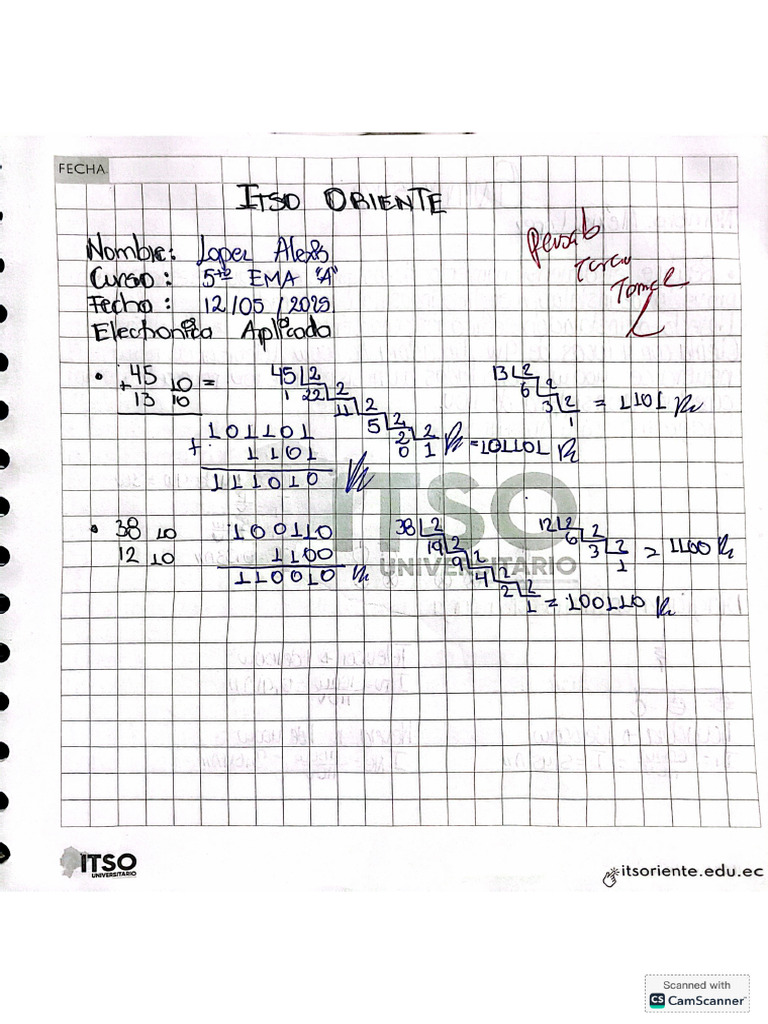 FECHA
ITSO ORIENTE
Nombre: Lopez Alexis
Curso: 5to EMA "A"
Fecha: 12/05/2025
Electronica Aplicada
• 45 10 =
+ 13 10
45 2
1 22 2
11 2
5 2
2 2
0 1 R = 101101 R
13 2
6 2
3 2
1 = 1101 R
101101
+ 1101
111010 R
• 38 10
12 10
100110
1100
110010 R
38 2
19 2
9 2
4 2
2 2
1 = 100110 R
12 2
6 2
3 2
1 = 1100 R
ITSO
UNIVERSITARIO
ITSO
UNIVERSITARIO
itsoriente.edu.ec
Scanned with
CS CamScanner